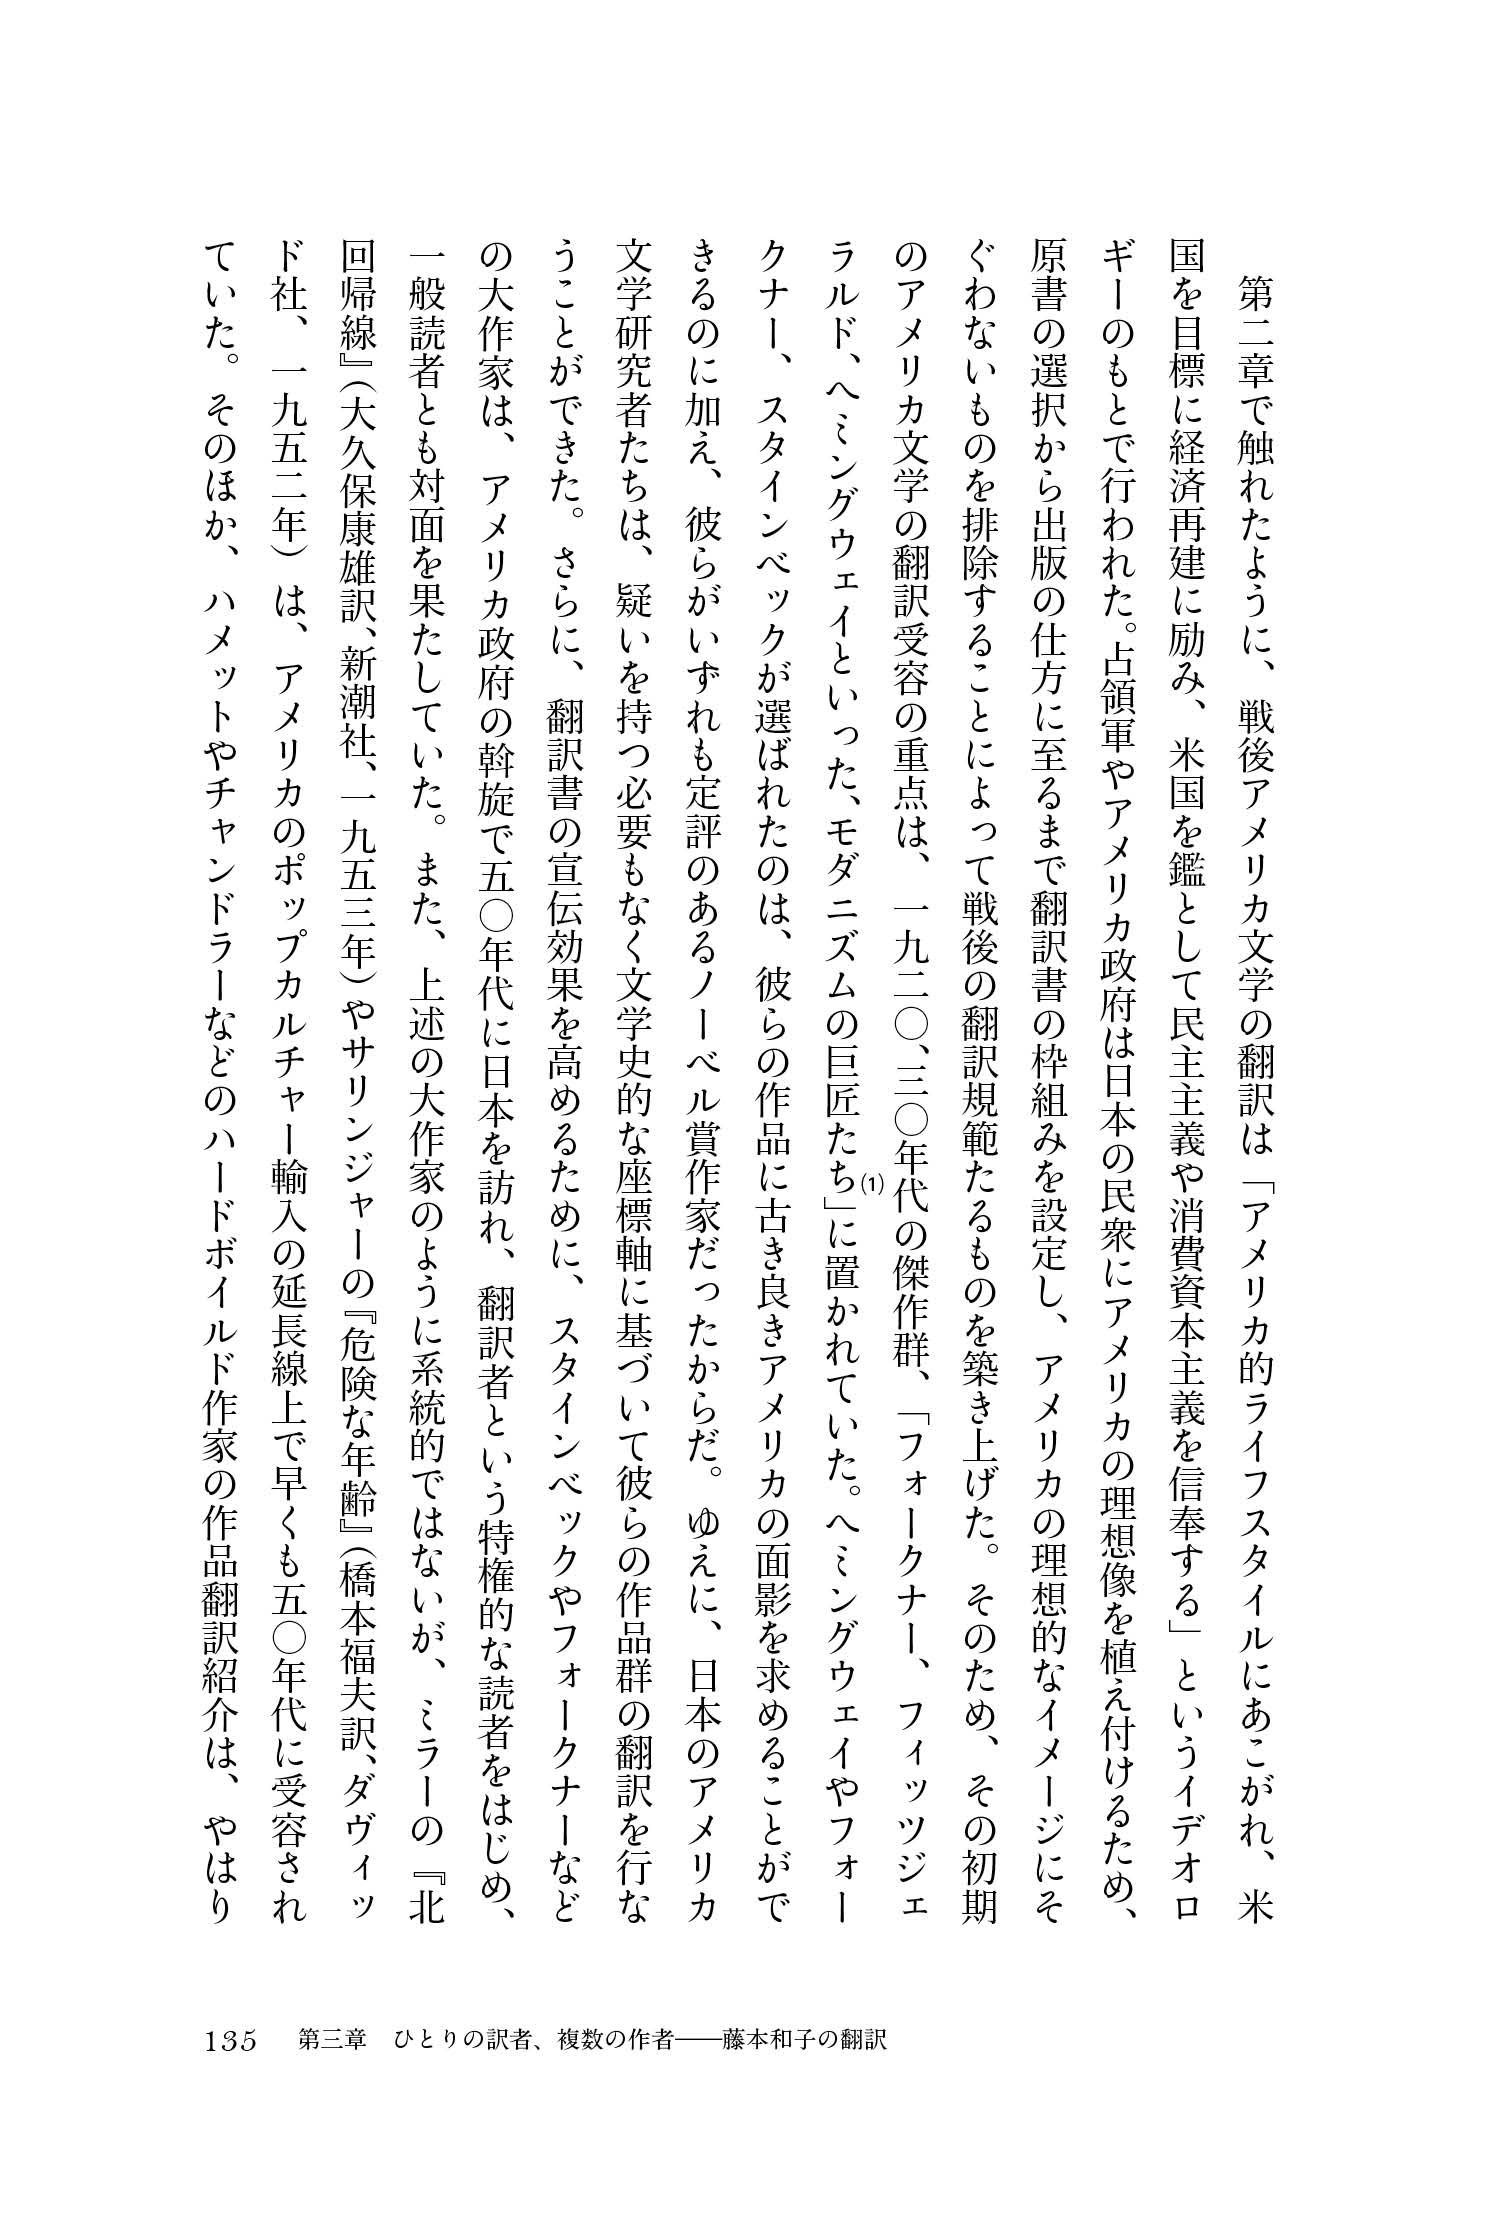 第二章で触れたように、戦後アメリカ文学の翻訳は「アメリカ的ライフスタイルにあこがれ、米
国を目標に経済再建に励み、米国を鑑として民主主義や消費資本主義を信奉する」というイデオロ
ギーのもとで行われた。占領軍やアメリカ政府は日本の民衆にアメリカの理想像を植え付けるため、
原書の選択から出版の仕方に至るまで翻訳書の枠組みを設定し、アメリカの理想的なイメージにそ
ぐわないものを排除することによって戦後の翻訳規範たるものを築き上げた。そのため、その初期
のアメリカ文学の翻訳受容の重点は、一九二〇、三〇年代の傑作群、「フォークナー、フィッツジェ
ラルド、ヘミングウェイといった、モダニズムの巨匠たち(1)」に置かれていた。ヘミングウェイやフォー
クナー、スタインベックが選ばれたのは、彼らの作品に古き良きアメリカの面影を求めることがで
きるのに加え、彼らがいずれも定評のあるノーベル賞作家だったからだ。ゆえに、日本のアメリカ
文学研究者たちは、疑いを持つ必要もなく文学史的な座標軸に基づいて彼らの作品群の翻訳を行な
うことができた。さらに、翻訳書の宣伝効果を高めるために、スタインベックやフォークナーなど
の大作家は、アメリカ政府の斡旋で五〇年代に日本を訪れ、翻訳者という特権的な読者をはじめ、
一般読者とも対面を果たしていた。また、上述の大作家のように系統的ではないが、ミラーの『北
回帰線』（大久保康雄訳、新潮社、一九五三年）やサリンジャーの『危険な年齢』（橋本福夫訳、ダヴィッ
ド社、一九五二年）は、アメリカのポップカルチャー輸入の延長線上で早くも五〇年代に受容され
ていた。そのほか、ハメットやチャンドラーなどのハードボイルド作家の作品翻訳紹介は、やはり
135 第三章　ひとりの訳者、複数の作者――藤本和子の翻訳